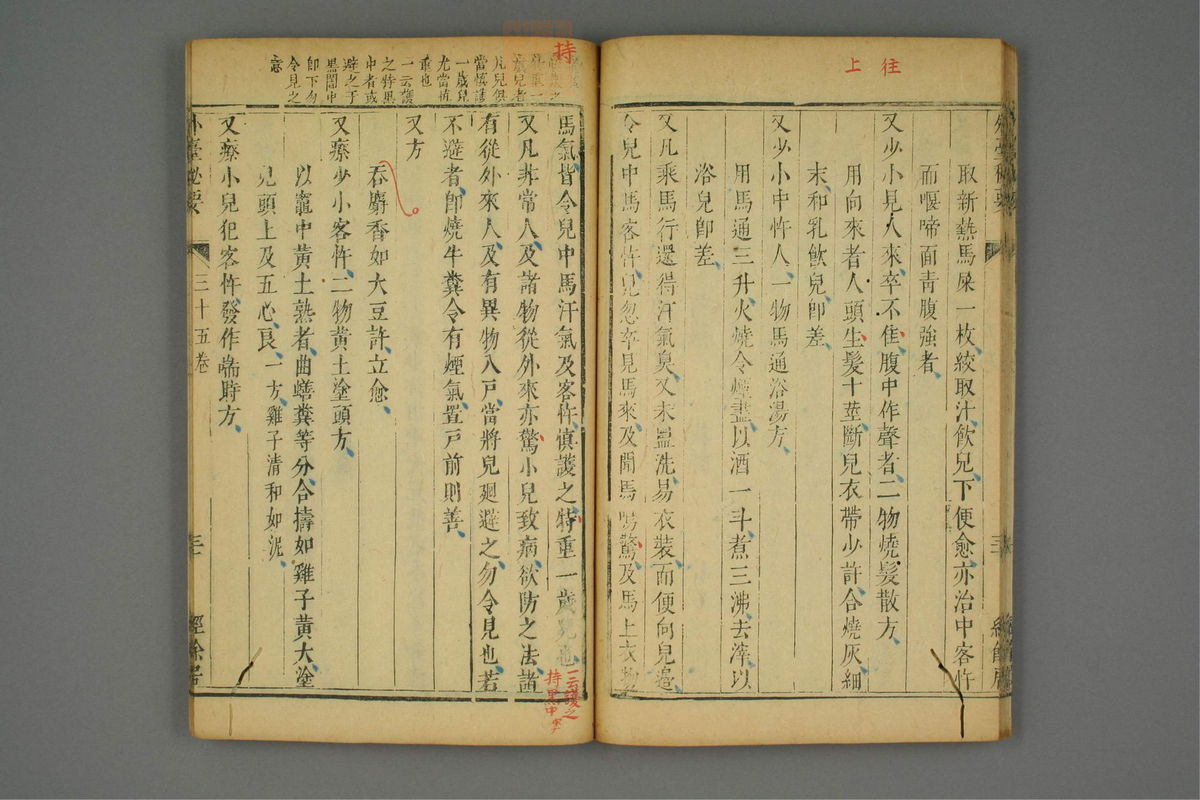 往
上
取新熱馬屎一枚絞取汁飲兒下便愈亦治中客忤
而偃啼面青腹強者
又少小見人來卒不佳腹中作聲者二物燒髮散方
用向來者人頭生髮十莖斷兒衣帶少許合燒灰細
末和乳飲兒即差
又少小中忤人一物馬通浴湯方
用馬通三升火燒令煙盡以酒一斗煮三沸去滓以
浴兒即差
又凡乘馬行還得汗氣臭又未盥洗易衣裝而便向兒邊
令兒中馬客忤兒忽卒見馬來及聞馬鳴驚及馬上衣物
持
馬氣皆令兒中馬汗氣及客忤慎護之特重一歲兒也
又凡非常人及諸物從外來亦驚小兒致病欲防之法諸
有從外來人及有異物入戶當將兒迴避之勿令見也若
不避者即燒牛糞令有煙氣置戶前則善
又方
吞麝香如大豆許立愈
又療少小客忤二物黃土塗頭方
以竈中黃土熟者曲蟮糞等分合擣如雞子黃大塗
兒頭上及五心良一方雞子清和如泥
又療小兒犯客忤發作喘時方
外臺秘要
三十五卷
經餘居
歲兒者
凡兒俱
當慎護
一歲兒
尤當慎
重也
一云護
之特黑
中者或
避之于
黑闇中
即下勿
令見之
意
一云護之
持黑中